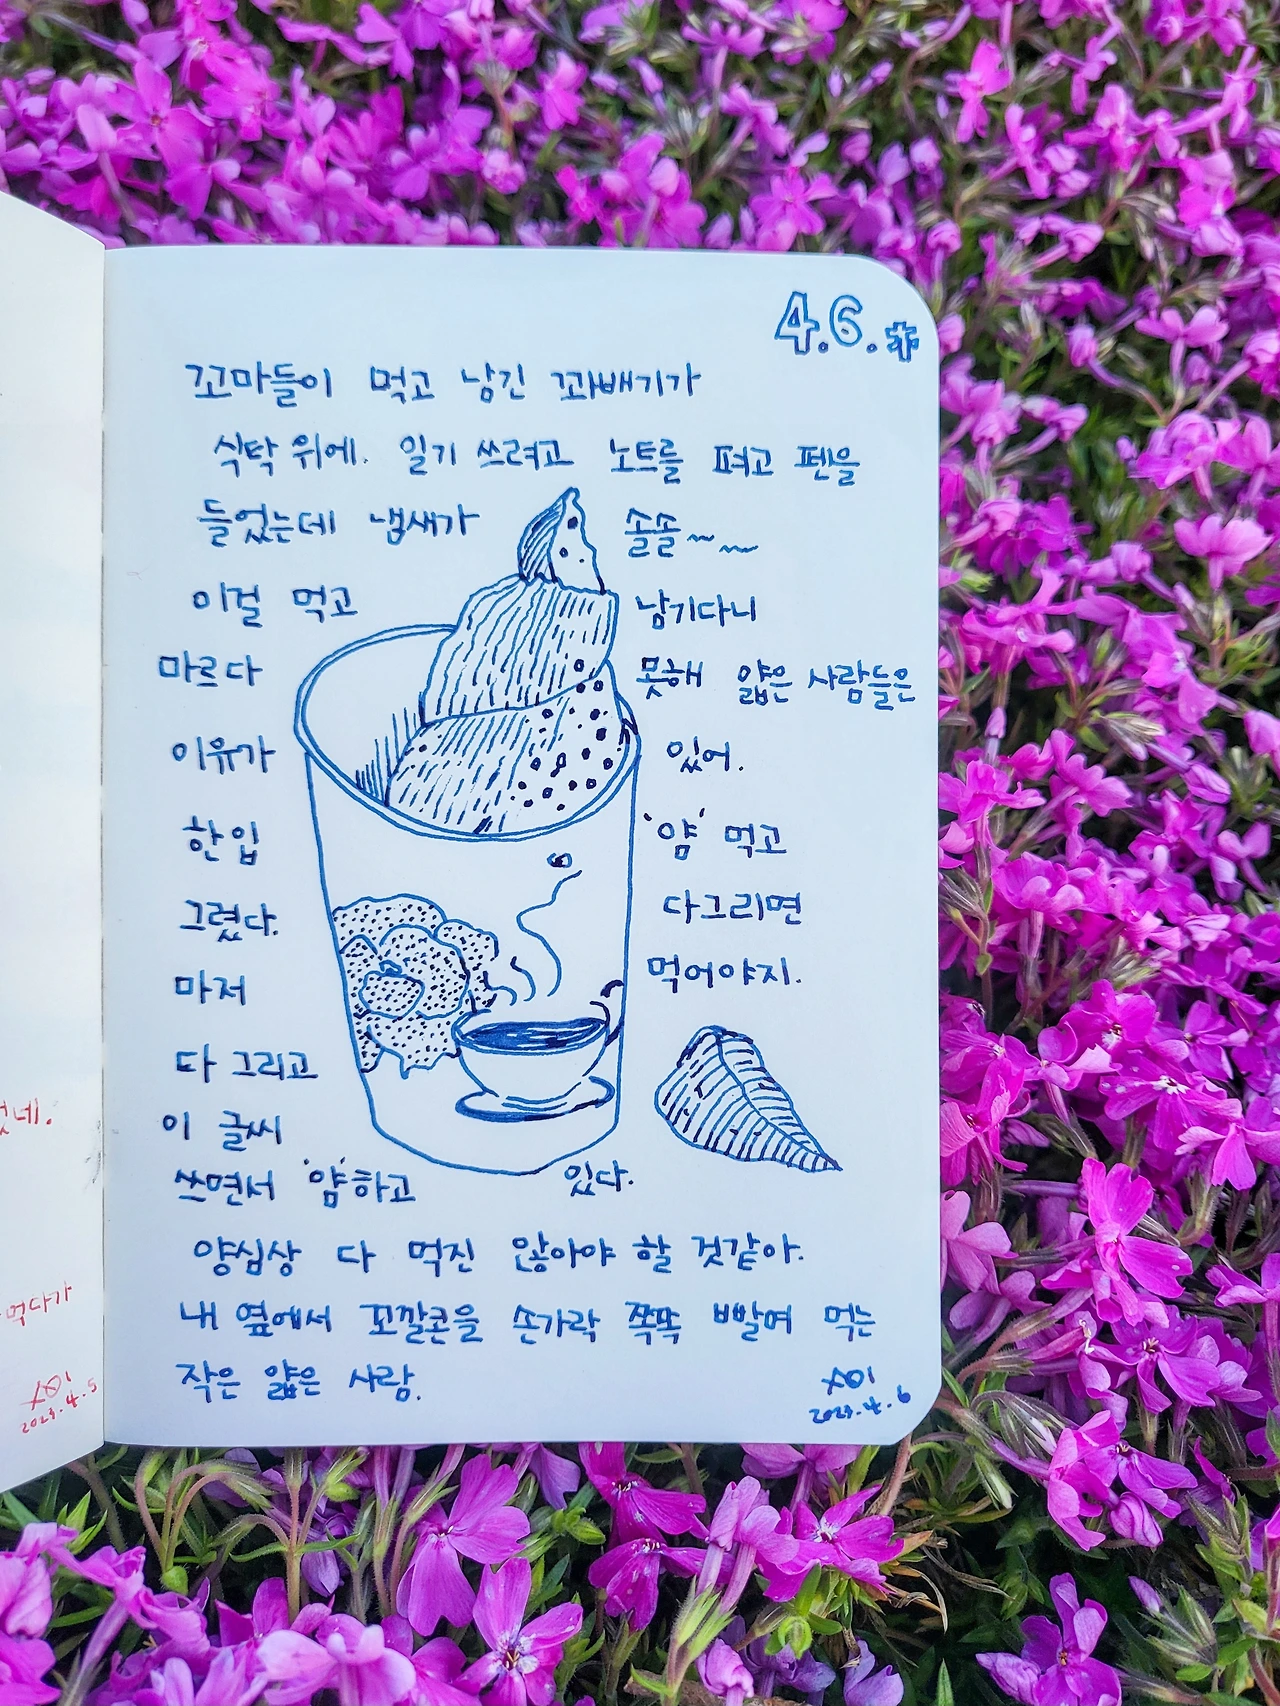 4.6.木
꼬마들이 먹고 남긴 꽈배기가
식탁 위에. 일기 쓰려고 노트를 펴고 펜을
들었는데 냄새가 솔솔~~
이걸 먹고 남기다니
마르다 못해 얇은 사람들은
이유가 있어.
한입 '얌' 먹고
그렸다. 다그리면
마저 먹어야지.
다 그리고
이 글씨
쓰면서 '얌'하고 있다.
양심상 다 먹진 않아야 할 것같아.
내 옆에서 꼬깔콘을 손가락 쪽쪽 빨며 먹는
작은 얇은 사람.
2023.4.6
네.
먹다가
2023.4.5